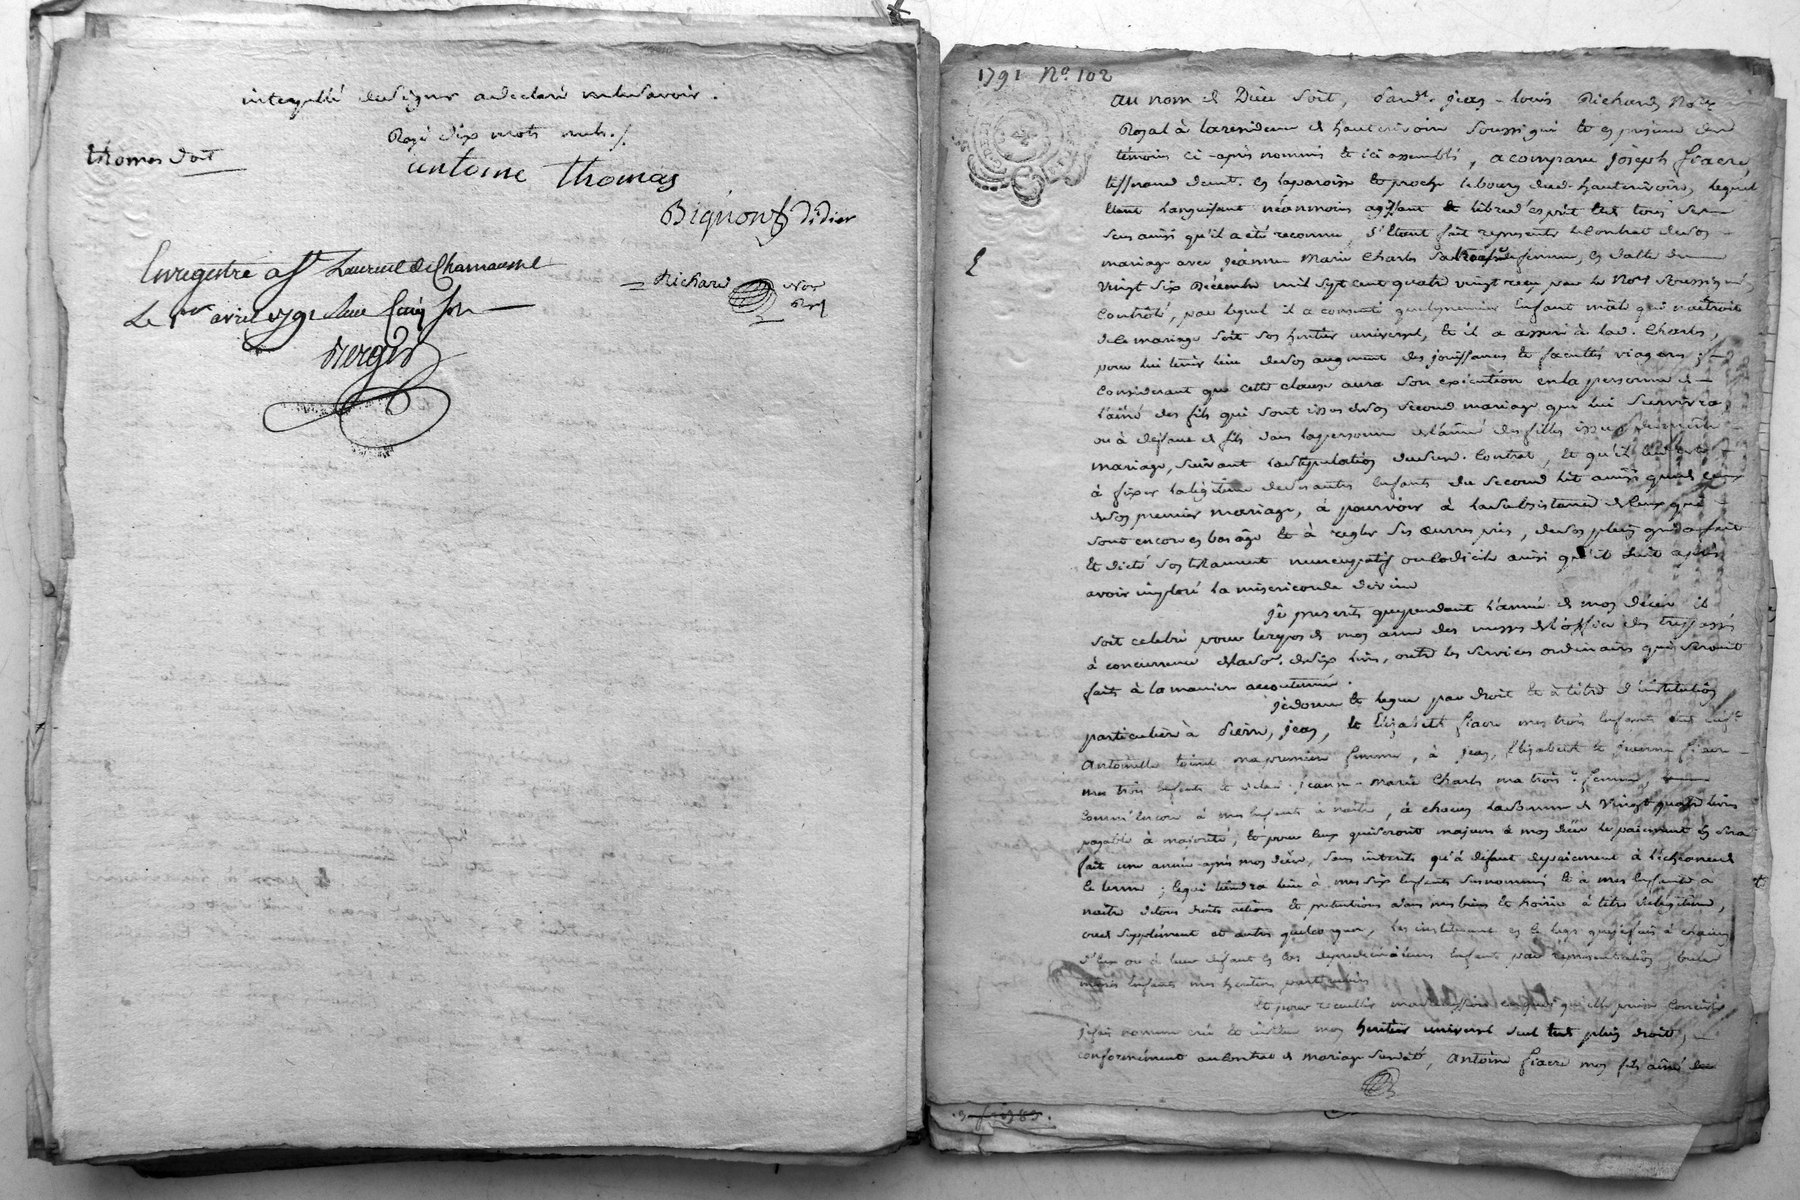 interpellé de signer a declaré ne le savoir.
Rayé dix mots nuls./.
thomas doit
antoine thomas
Bignon Didier
Enregistré a St Laurent de Chamousset
Le 1er avril 1791
Richard Nore Royl
Vergis
1791 No. 102
au nom de Dieu soit, pardt. jean-louis Richard Nore
Royal à la residence de hauterivoire soussigné et en présence des
témoins ci-après nommés et ici assemblés, a comparu joseph fiacre,
tisserand demt. en la paroisse et proche le bourg dud. hauterivoire, lequel
étant languissant néanmoins agissant et libre d'esprit et de tous ses
sens ainsi qu'il a été reconnu, s'étant fait representer le contrat de son
mariage avec jeanne Marie Charles sa troisme femme, en datte du
vingt six Décembre mil sept cent quatre vingt par le Nore soussigné,
Contrôlé, par lequel il a consenti que le premier enfant mâle qui naîtroit
de le mariage soit son heritier universel, et il a assuré à lad. Charles,
pour lui tenir lieu de son augment des jouissances et facultés viageres;
Considerant que cette clause aura son exécution en la personne de
l'ainé des fils qui sont issus de son second mariage qui lui survivra,
ou à défaut de fils dans la personne de l'ainée des filles issues
mariage, suivant la stipulation dud. Contrat, et qu'il lui reste
à fixer la légitime de ses autres enfants du second lit ainsi que de ceux
de son premier mariage, à pourvoir à la subsistance de ceux qui
sont encore en bas âge et à regler ses œuvres pies, de son plein gré a fait
et dicté son testament nuncupatif ou codicile ainsi qu'il suit après
avoir imploré la misericorde divine
Je prescrits que pendant l'année de mon décès il
soit celebré pour le repos de mon ame des messes de l'office des trépassés
à concurrence de la som. de six livres, outre les services ordinaires qui seront
faits à la maniere accoutumée.
je donne et legue par droit et à titre d'institution
particuliere à Pierre, jean, et Elizabeth fiacre mes trois enfants et de
Antoinette ma premiere femme, à jean, Elizabeth et jeanne fiacre
mes trois enfants et de lad. jeanne-marie Charles ma troise. femme,
comm'encore à mes enfants à naitre, à chacun la somme de vingt quatre livres
payable à majorité, et pour ceux qui seront majeurs à mon décès le paiement en sera
fait une année après mon décès, sans interets qu'à défaut de paiement à l'échéance
le terme; ce qui tiendra lieu à mes six enfants susnommés et à mes enfants à
naitre de tous droits actions et pretentions dans mes biens et hoirie à titre de légitime,
supplément et autres quelconques, les instituant en le legs que je fais à chacun
d'eux ou à leur défaut en cas de predécès à leurs enfants par representation,
mes enfants mes heritiers particuliers
Et pour recueillir ma succession en quoi qu'elle puisse consister
je fais nomme crée et institue mon heritier universel seul et de plein droit,
conformément au contrat de mariage susdaté, Antoine fiacre mon fils ainé